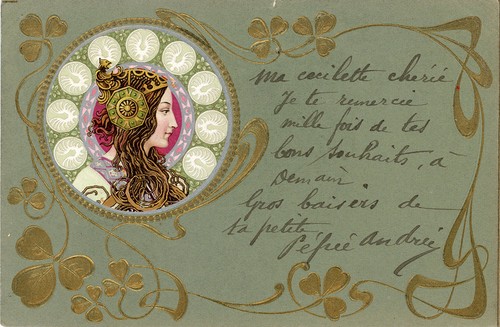 Ma cocilette chérie
Je te remercie
mille fois de tes
bons souhaits, à
Demain.
Gros baisers de
ta petite
Pépée Andrée